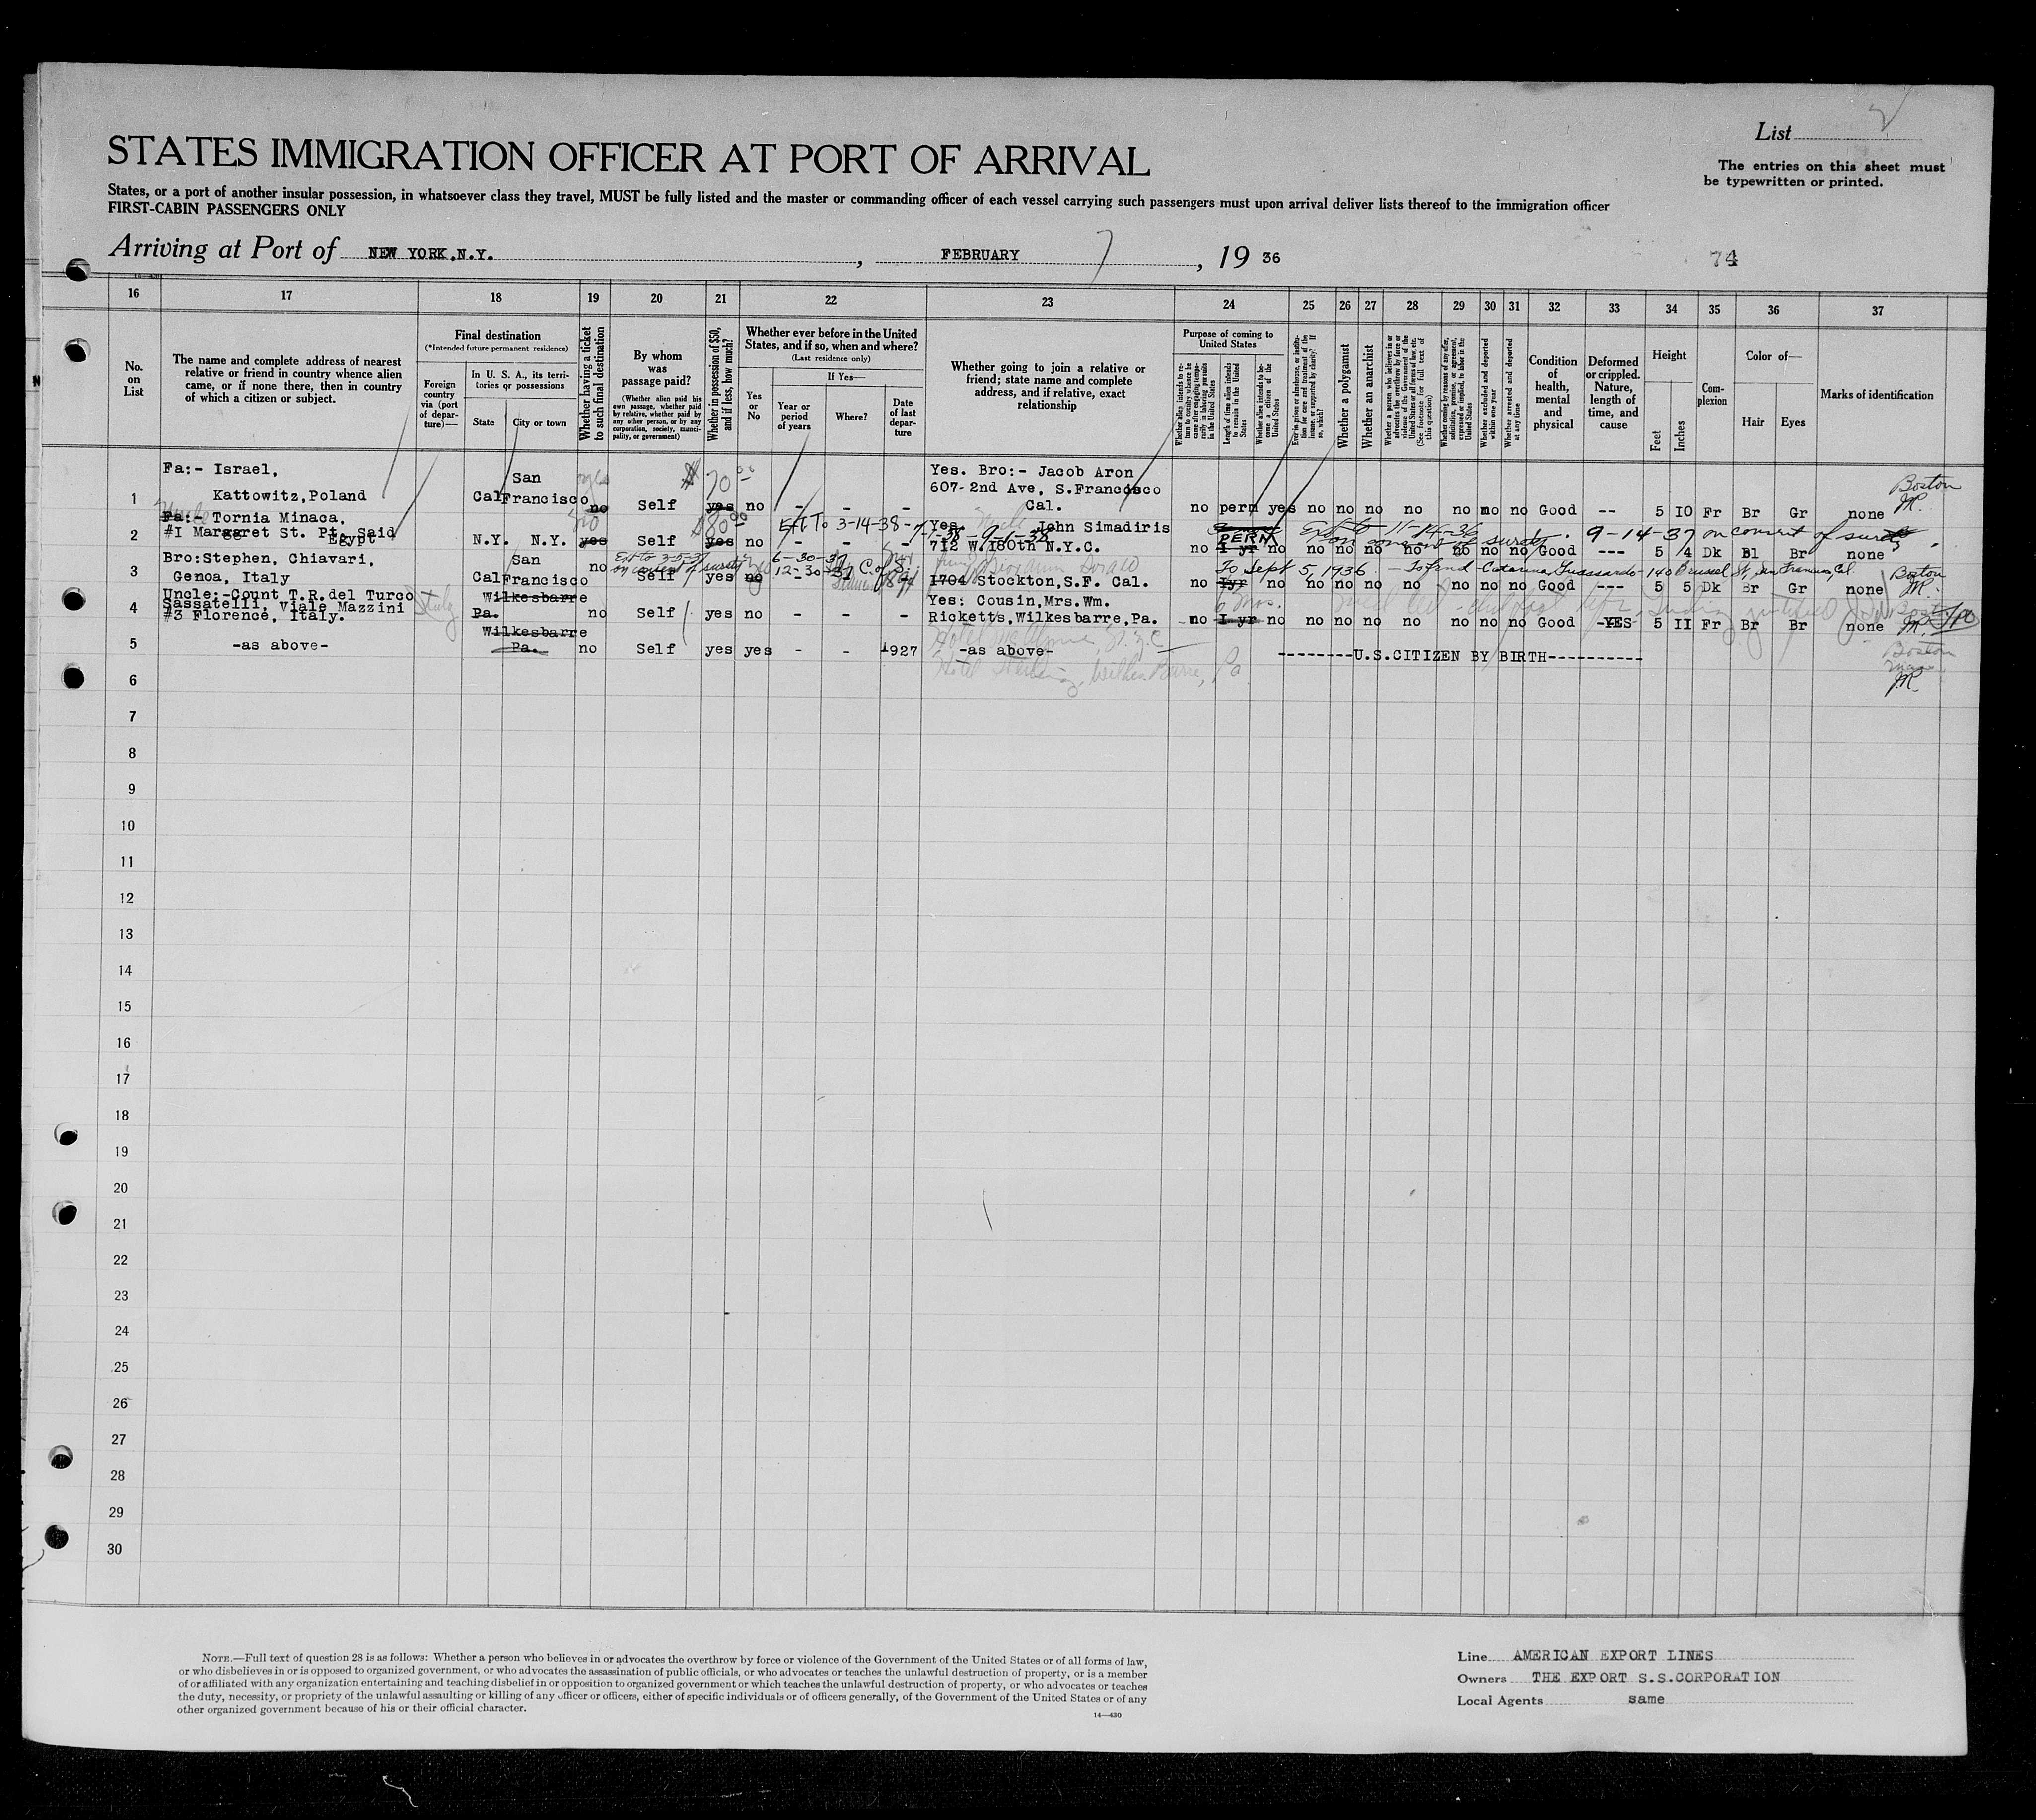 List 2
STATES IMMIGRATION OFFICER AT PORT OF ARRIVAL
The entries on this sheet must
be typewritten or printed.
States, or a port of another insular possession, in whatsoever class they travel, MUST be fully listed and the master or commanding officer of each vessel carrying such passengers must upon arrival deliver lists thereof to the immigration officer
FIRST-CABIN PASSENGERS ONLY
Arriving at Port of NEW YORK.N.Y. , FEBRUARY 7 , 19 36
74
16 17 18 19 20 21 22 23 24 25 26 27 28 29 30 31 32 33 34 35 36 37
No. on List
The name and complete address of nearest relative or friend in country whence alien came, or if none there, then in country of which a citizen or subject.
Final destination
(*Intended future permanent residence)
Foreign country via (port of departure)—
In U. S. A., its territories or possessions
State
City or town
Whether having a ticket to such final destination
By whom was passage paid?
(Whether alien paid his own passage, whether paid by relative, whether paid by any other person, or by any corporation, society, municipality, or government)
Whether in possession of $50, and if less, how much?
Whether ever before in the United States, and if so, when and where?
(Last residence only)
Yes or No
If Yes—
Year or period of years
Where?
Date of last departure
Whether going to join a relative or friend; state name and complete address, and if relative, exact relationship
Purpose of coming to United States
Length of time alien intends to remain in the United States
Whether alien intends to become a citizen of the United States
Whether a polygamist
Whether an anarchist
Whether excluded and deported within one year
Whether arrested and deported at any time
Condition of health, mental and physical
Deformed or crippled. Nature, length of time, and cause
Height
Feet
Inches
Complexion
Color of—
Hair
Eyes
Marks of identification
1 Fa:- Israel, Kattowitz,Poland Cal San Francisco yes no Self $70 00 yes no - - - Yes. Bro:- Jacob Aron 607-2nd Ave, S.Francisco Cal. no perm yes no no no no no no no Good -- 5 10 Fr Br Gr none Boston
2 Uncle Fa:- Tornia Minaca, #1 Margaret St. Pt. Said Egypt N.Y. N.Y. no yes Self $80 00 yes no - - - Ext To 3-14-38 - 9-1-38 Yes. John Simadiris 712 W.180th N.Y.C. no PERM 1 yr no no no no no no no no Good --- 5 4 Dk Bl Br none Ext to 11-14-36 on consent of surety. 9-14-37 on consent of surety
3 Bro:Stephen, Chiavari, Genoa, Italy Cal San Francisco no Self Ext to 3-5-37 on consent of surety yes no 6-30-37 12-30-37 - 1704 Stockton,S.F. Cal. no 1yr no no no no no no no no Good --- 5 5 Dk Br Gr none To Sept 5, 1936 Boston
4 Uncle:-Count T.R.del Turco Sassatelli, Viale Mazzini #3 Florence, Italy. Italy Wilkesbarre Pa. no Self yes no - - - Yes: Cousin,Mrs.Wm. Ricketts,Wilkesbarre,Pa. no 6 mos. 1 yr no no no no no no no no Good -YES 5 11 Fr Br Br none
5 -as above- Wilkesbarre Pa. no Self yes yes - - 1927 -as above- --------U.S.CITIZEN BY BIRTH---------- Boston
6
7
8
9
10
11
12
13
14
15
16
17
18
19
20
21
22
23
24
25
26
27
28
29
30
NOTE.—Full text of question 28 is as follows: Whether a person who believes in or advocates the overthrow by force or violence of the Government of the United States or of all forms of law,
or who disbelieves in or is opposed to organized government, or who advocates the assassination of public officials, or who advocates or teaches the unlawful destruction of property, or is a member
of or affiliated with any organization entertaining and teaching disbelief in or opposition to organized government or which teaches the unlawful destruction of property, or who advocates or teaches
the duty, necessity, or propriety of the unlawful assaulting or killing of any officer or officers, either of specific individuals or of officers generally, of the Government of the United States or of any
other organized government because of his or their official character.
14—430
Line AMERICAN EXPORT LINES
Owners THE EXPORT S.S.CORPORATION
Local Agents same